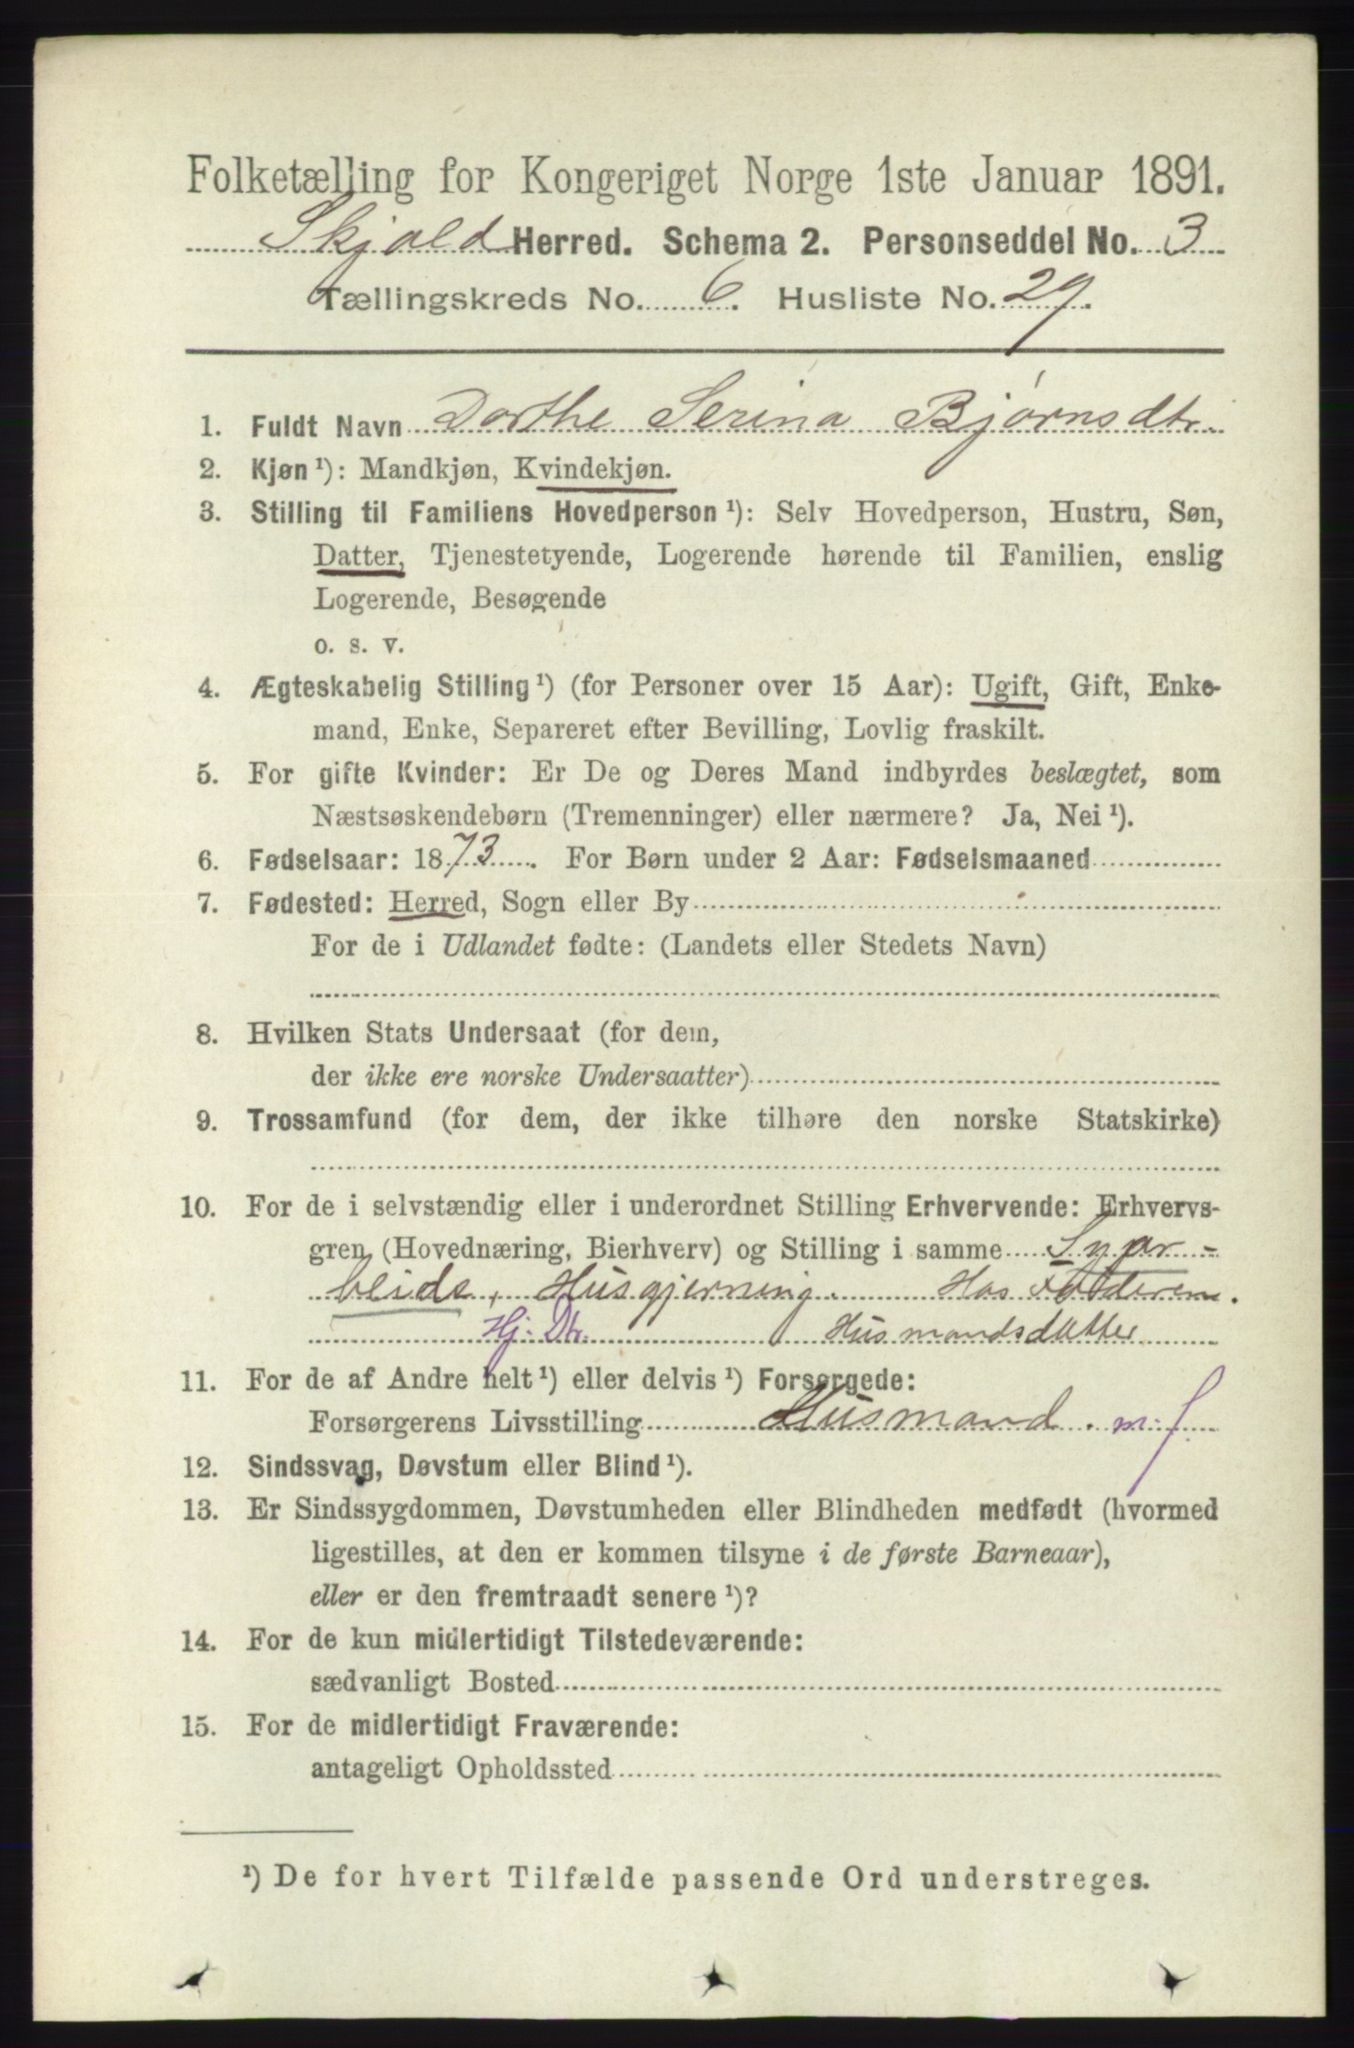 Folketælling for Kongeriget Norge 1ste Januar 1891.
Skjold Herred. Schema 2. Personseddel No. 3
Tællingskreds No. 6. Husliste No. 29.
1. Fuldt Navn Dorthe Serina Bjørnsdtr.
2. Kjøn ¹): Mandkjøn, Kvindekjøn.
3. Stilling til Familiens Hovedperson ¹): Selv Hovedperson, Hustru, Søn,
Datter, Tjenestetyende, Logerende hørende til Familien, enslig
Logerende, Besøgende
o. s. v.
4. Ægteskabelig Stilling ¹) (for Personer over 15 Aar): Ugift, Gift, Enke-
mand, Enke, Separeret efter Bevilling, Lovlig fraskilt.
5. For gifte Kvinder: Er De og Deres Mand indbyrdes beslægtet, som
Næstsøskendebørn (Tremenninger) eller nærmere? Ja, Nei ¹).
6. Fødselsaar: 1873. For Børn under 2 Aar: Fødselsmaaned
7. Fødested: Herred, Sogn eller By
For de i Udlandet fødte: (Landets eller Stedets Navn)
8. Hvilken Stats Undersaat (for dem,
der ikke ere norske Undersaatter)
9. Trossamfund (for dem, der ikke tilhøre den norske Statskirke)
10. For de i selvstændig eller i underordnet Stilling Erhvervende: Erhvervs-
gren (Hovednæring, Bierhverv) og Stilling i samme Syar-
beide, Husgjerning. Hos Faderen.
Hj. Dtr. Husmandsdatter
11. For de af Andre helt ¹) eller delvis ¹) Forsørgede:
Forsørgerens Livsstilling Husmand. m. f.
12. Sindssvag, Døvstum eller Blind ¹).
13. Er Sindssygdommen, Døvstumheden eller Blindheden medfødt (hvormed
ligestilles, at den er kommen tilsyne i de første Barneaar),
eller er den fremtraadt senere ¹)?
14. For de kun midlertidigt Tilstedeværende:
sædvanligt Bosted
15. For de midlertidigt Fraværende:
antageligt Opholdssted
¹) De for hvert Tilfælde passende Ord understreges.